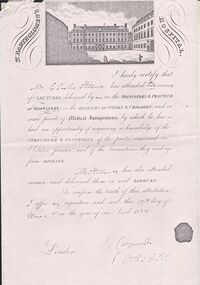 ST. BARTHOLOMEW'S
HOSPITAL.
I hereby certify that
Mr. Charles has attended courses
of LECTURES delivered by me on the PRINCIPLES & PRACTICE
of MIDWIFERY, on the DISEASES of WOMEN & CHILDREN, and on
some points of Medical Jurisprudence, by which he has
had an opportunity of acquiring a knowledge of the
STRUCTURE & FUNCTIONS of the parts concerned in
and of the transactions they undergo
from DISEASE.
Mr. has also attended
women, and delivered them in real LABOURS.
To confirm the truth of this attestation
I affix my signature and seal this 19th day of
in the year of our Lord
London